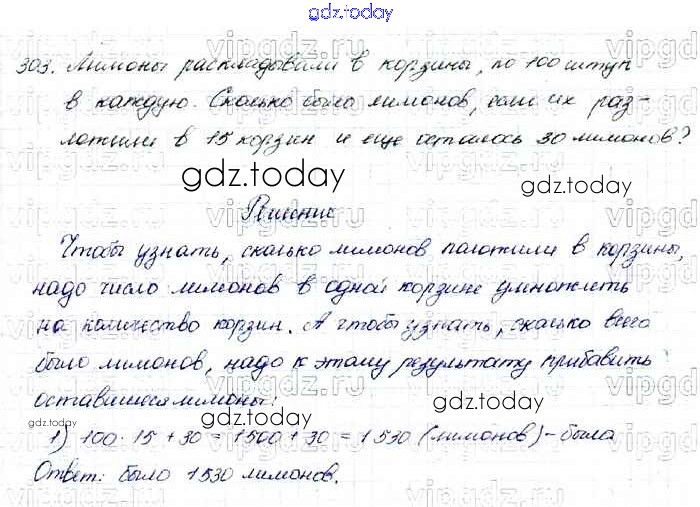 gdz.today
303. Лимоны раскладывали в корзины, по 100 штук
в каждую. Сколько было лимонов, если их раз-
ложили в 15 корзин и еще осталось 30 лимонов?
gdz.today
gdz.today
Решение
Чтобы узнать, сколько лимонов положили в корзины,
надо число лимонов в одной корзине умножить
на количество корзин. А чтобы узнать, сколько всего
было лимонов, надо к этому результату прибавить
оставшиеся лимоны:
gdz.today
gdz.today
1) 100 · 15 + 30 = 1500 + 30 = 1530 (лимонов) - было
Ответ: было 1530 лимонов.
gdz.today